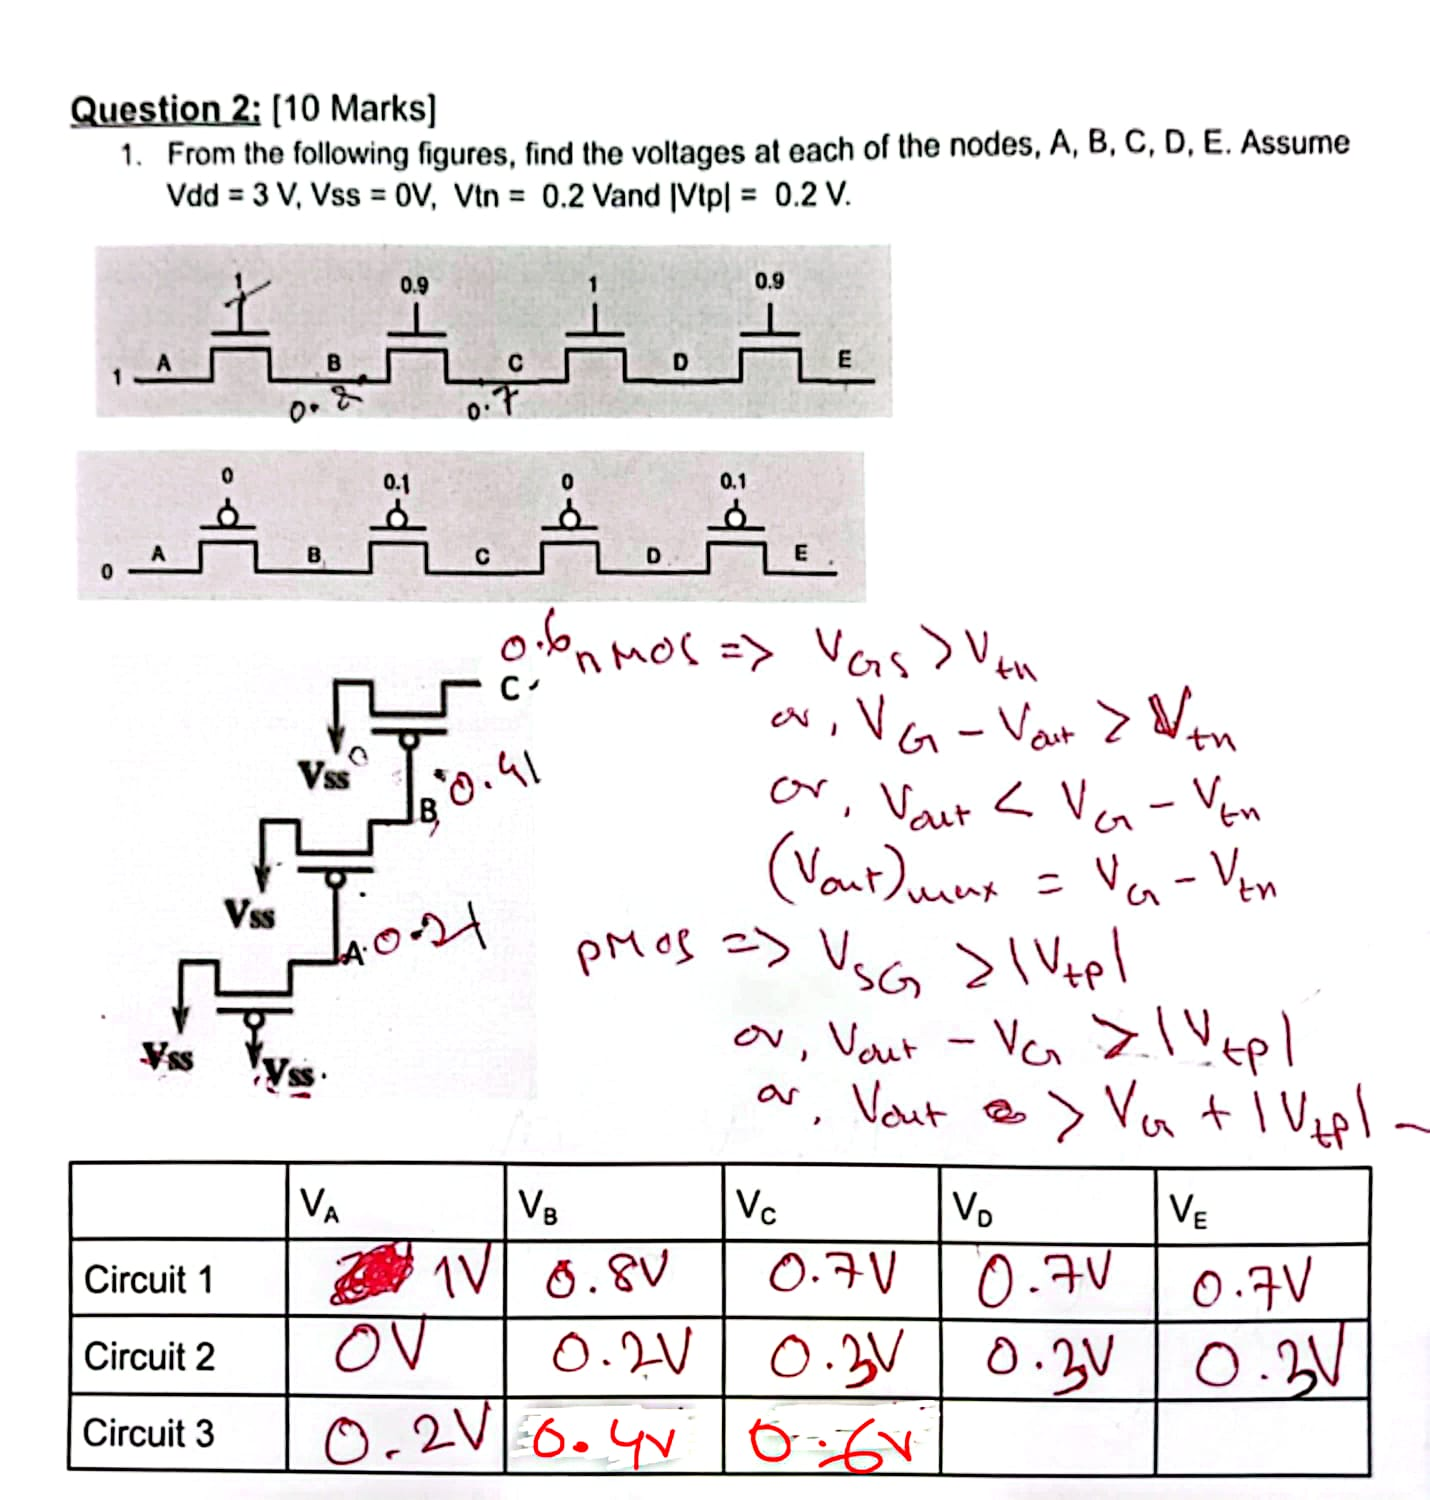 Question 2: [10 Marks]
1. From the following figures, find the voltages at each of the nodes, A, B, C, D, E. Assume
Vdd = 3 V, Vss = 0V, Vtn = 0.2 Vand |Vtp| = 0.2 V.
1 0.9 1 0.9
1 A B C D E
0.8 0.7
0 0.1 0 0.1
0 A B C D E
0.6 nMOS => VGS > Vtn
C
or, VG - Vout > Vtn
Vss 0
B 0.41
or, Vout < VG - Vtn
(Vout)max = VG - Vtn
Vss
A 0.21
pMOS => VSG ≥ |Vtp|
or, Vout - VG > |Vtp|
Vss Vss
or, Vout > VG + |Vtp|
VA VB VC VD VE
Circuit 1 1V 0.8V 0.7V 0.7V 0.7V
Circuit 2 0V 0.2V 0.3V 0.3V 0.3V
Circuit 3 0.2V 0.4V 0.6V